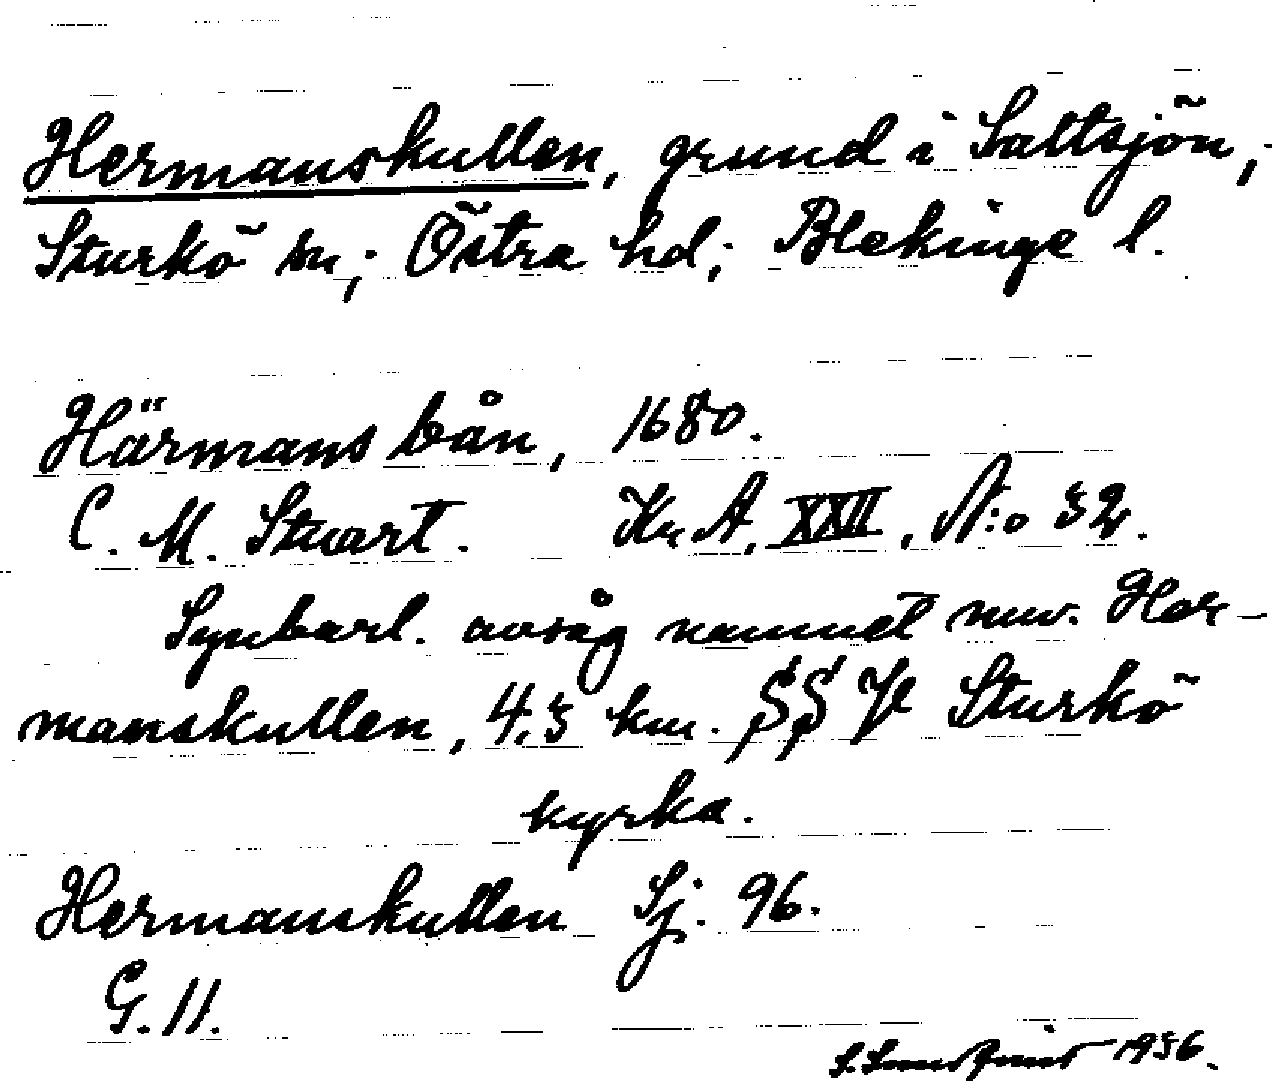 Hermanskullen, grund i Saltsjön,
Sturkö sn; Östra hd; Blekinge l.
Härmans bån, 1680.
C. M. Stuart. Kr. A, XXII, N:o 32.
Synbarl. avsåg namnet nuv. Her-
manskullen, 4,5 km. SSV Sturkö
kyrka.
Hermanskullen Sj. 96.
G. 11.
1956.